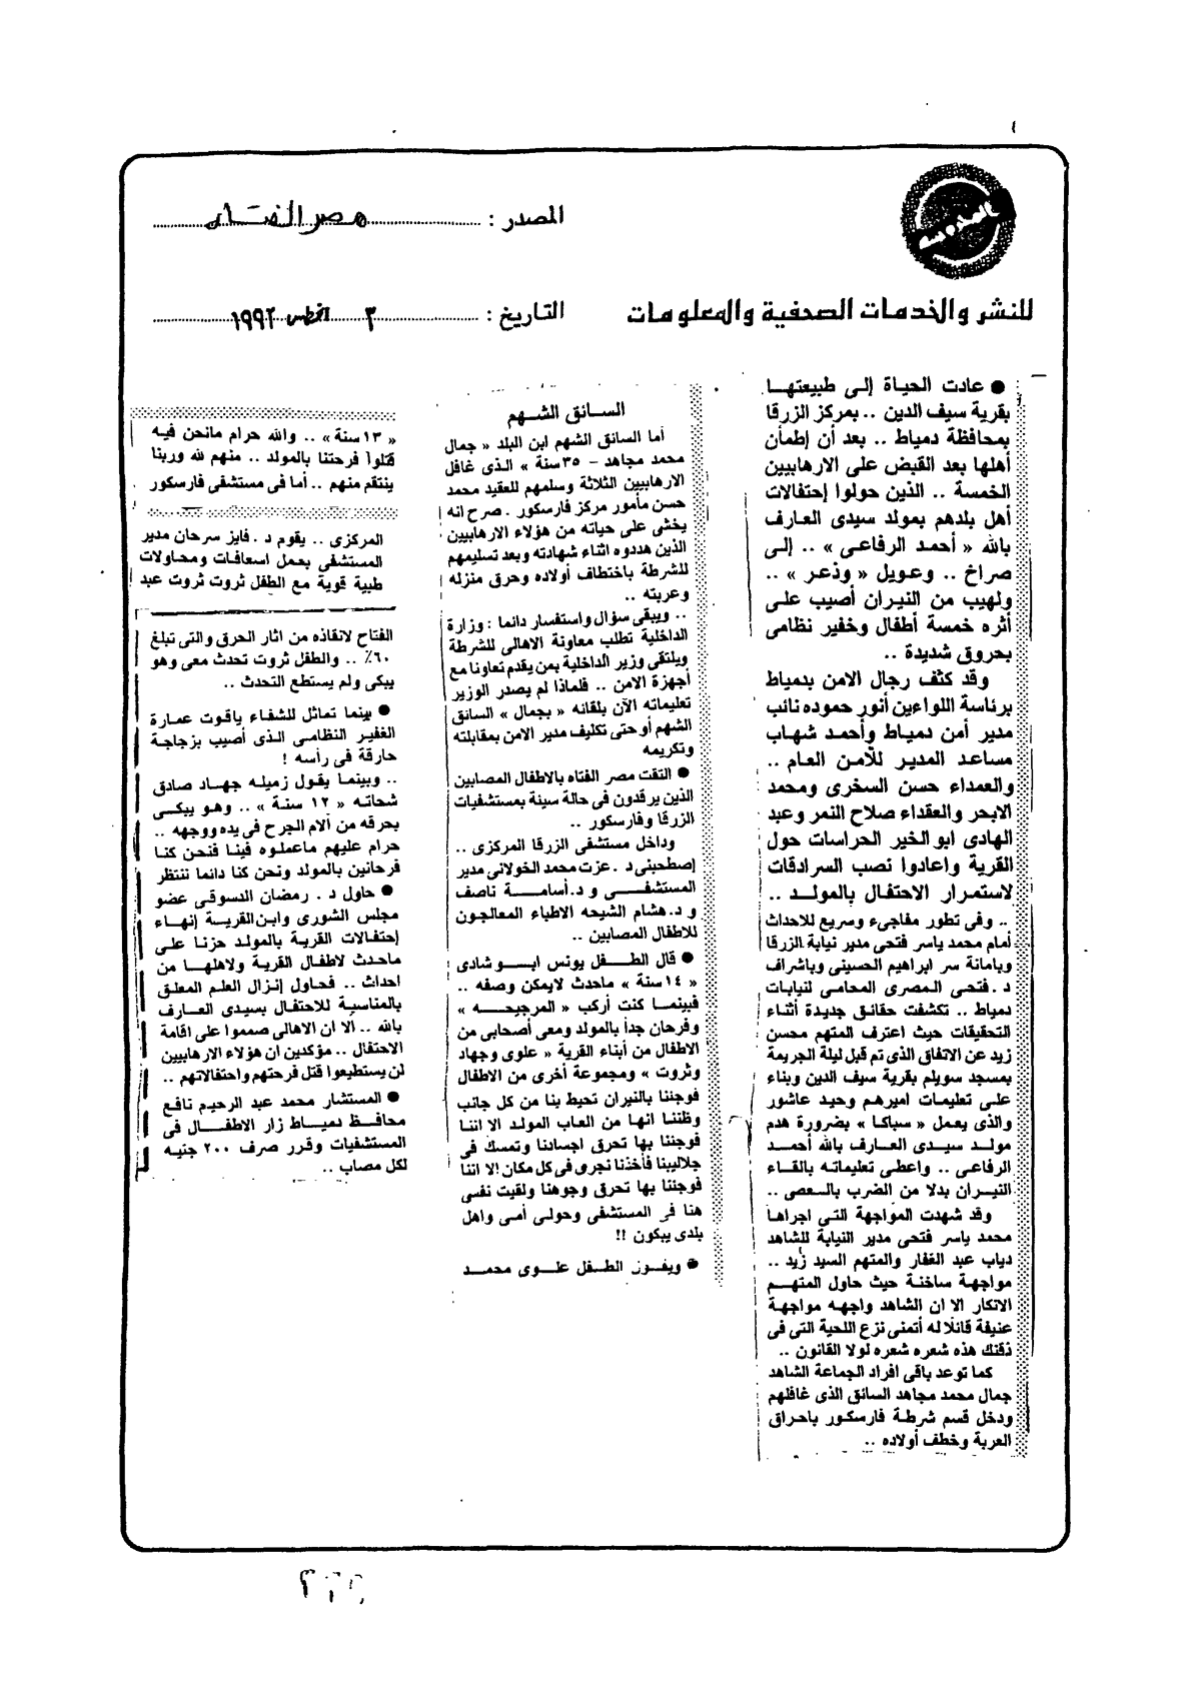 المصدر : مصر الفتاه
للنشر والخدمات الصحفية والمعلومات
التاريخ : ٣ اغطس ١٩٩٢
● عادت الحياة إلى طبيعتهـا
بقرية سيف الدين .. بمركز الزرقا
بمحافظة دمياط .. بعد أن إطمأن
أهلها بعد القبض على الارهابيين
الخمسة .. الذين حولوا إحتفالات
أهل بلدهم بمولد سيدى العارف
بالله « أحمد الرفاعى » .. إلى
صراخ .. وعويل « وذعر » ..
ولهيب من النيران أصيب على
أثره خمسة أطفال وخفير نظامى
بحروق شديدة ..
وقد كثف رجال الامن بدمياط
برئاسة اللواءين أنور حموده نائب
مدير أمن دمياط وأحمد شهاب
مساعد المدير للأمن العام ..
والعمداء حسن السخرى ومحمد
الابحر والعقداء صلاح النمر وعبد
الهادى ابو الخير الحراسات حول
القرية واعادوا نصب السرادقات
لاستمرار الاحتفال بالمولـد ..
.. وفى تطور مفاجىء وسريع للاحداث
أمام محمد ياسر فتحى مدير نيابة الزرقا
وبامانة سر ابراهيم الحسينى وباشراف
د . فتحى المصرى المحامى لنيابات
دمياط .. تكشفت حقائق جديدة أثناء
التحقيقات حيث اعترف المتهم محسن
زيد عن الاتفاق الذى تم قبل ليلة الجريمة
بمسجد سويلم بقرية سيف الدين وبناء
على تعليمات اميرهم وحيد عاشور
والذى يعمل « سباكا » بضرورة هدم
مولد سيدى العارف بالله أحمـد
الرفاعى .. واعطى تعليماته بالقـاء
النيـران بدلا من الضرب بالـعصى ..
وقد شهدت المواجهة التى اجراها
محمد ياسر فتحى مدير النيابة للشاهد
دياب عبد الغفار والمتهم السيد زيد ..
مواجهة ساخنة حيث حاول المتهـم
الانكار الا ان الشاهد واجهه مواجهة
عنيفة قائلا له أتمنى نزع اللحية التى فى
ذقنك هذه شعره شعره لولا القانون ..
كما توعد باقى افراد الجماعة الشاهد
جمال محمد مجاهد السائق الذى غافلهم
ودخل قسم شرطة فارسكور باحراق
العربة وخطف أولاده ..
السـائق الشـهم
أما السائق الشهم ابن البلد « جمال
محمد مجاهد - ٣٥ سنة » الذى غافل
الارهابيين الثلاثة وسلمهم للعقيد محمد
حسن مأمور مركز فارسكور . صرح انه
يخشى على حياته من هؤلاء الارهابيين
الذين هددوه اثناء شهادته وبعد تسليمهم
للشرطة باختطاف أولاده وحرق منزله
وعربته ..
.. ويبقى سؤال واستفسار دائما : وزارة
الداخلية تطلب معاونة الاهالى للشرطة
ويلتقى وزير الداخلية بمن يقدم تعاونا مع
أجهزة الامن .. فلماذا لم يصدر الوزير
تعليماته الآن بلقائه « بجمال » السائق
الشهم أو حتى تكليف مدير الامن بمقابلته
وتكريمه
● التقت مصر الفتاه بالاطفال المصابين
الذين يرقدون فى حالة سيئة بمستشفيات
الزرقا وفارسكور ..
وداخل مستشفى الزرقا المركزى ..
إصطحبنى د . عزت محمد الخولانى مدير
المستشفــى و د.أسامـــة ناصف
و د.هشام الشيحه الاطباء المعالجون
للاطفال المصابين ..
● قال الطــفل يونس ابـــو شادى
« ١٤ سنة » ماحدث لايمكن وصفه ..
فبينما كنت أركب « المرجيحـــه »
وفرحان جداً بالمولد ومعى أصحابى من
الاطفال من أبناء القرية « علوى وجهاد
وثروت » ومجموعة أخرى من الاطفال
فوجئنا بالنيران تحيط بنا من كل جانب
وظننا انها من العاب المولد الا اننا
فوجئنا بها تحرق اجسادنا وتمسك فى
جلاليبنا فأخذنا نجرى فى كل مكان إلا اننا
فوجئنا بها تحرق وجوهنا ولقيت نفسى
هنا فى المستشفى وحولى أمى واهل
بلدى يبكون !!
● ويقـول الطـفل علـوى محمـد
« ١٣ سنة » .. والله حرام مانحن فيـه
قتلوا فرحتنا بالمولد .. منهم لله وربنا
ينتقم منهم .. أما فى مستشفى فارسكور
المركزى .. يقوم د . فايز سرحان مدير
المستشفى بعمل اسعافات ومحاولات
طبية قوية مع الطفل ثروت ثروت عبد
الفتاح لانقاذه من اثار الحرق والتى تبلغ
٦٠٪ .. والطفل ثروت تحدث معى وهو
يبكى ولم يستطع التحدث ..
● بينما تماثل للشفاء ياقوت عمـارة
الغفير النظامـى الـذى أصيب بزجاجـة
حارقة فى رأسه !
.. وبينمـا يقول زميلـه جهـاد صادق
شحاتـه « ١٢ سنـة » .. وهـو يبكـى
بحرقه من آلام الجرح فى يده ووجهه ..
حرام عليهم ماعملوه فينـا فنحن كنـا
فرحانين بالمولد ونحن كنا دائما ننتظر
● حاول د . رمضان الدسوقى عضو
مجلس الشورى وابن القريـة إنهـاء
إحتفالات القرية بالمولد حزنا علـى
ماحدث لاطفال القرية ولاهلهـا مـن
احداث .. فحاول إنزال العلم المعلق
بالمناسبة للاحتفال بسيدى العـارف
بالله .. الا ان الاهالى صمموا على اقامة
الاحتفال .. مؤكدين ان هؤلاء الارهابيين
لن يستطيعوا قتل فرحتهم واحتفالاتهم ..
● المستشار محمد عبد الرحيم نافع
محافــظ دميــاط زار الاطفــال فى
المستشفيات وقرر صرف ٢٠٠ جنيـه
لكل مصاب ..